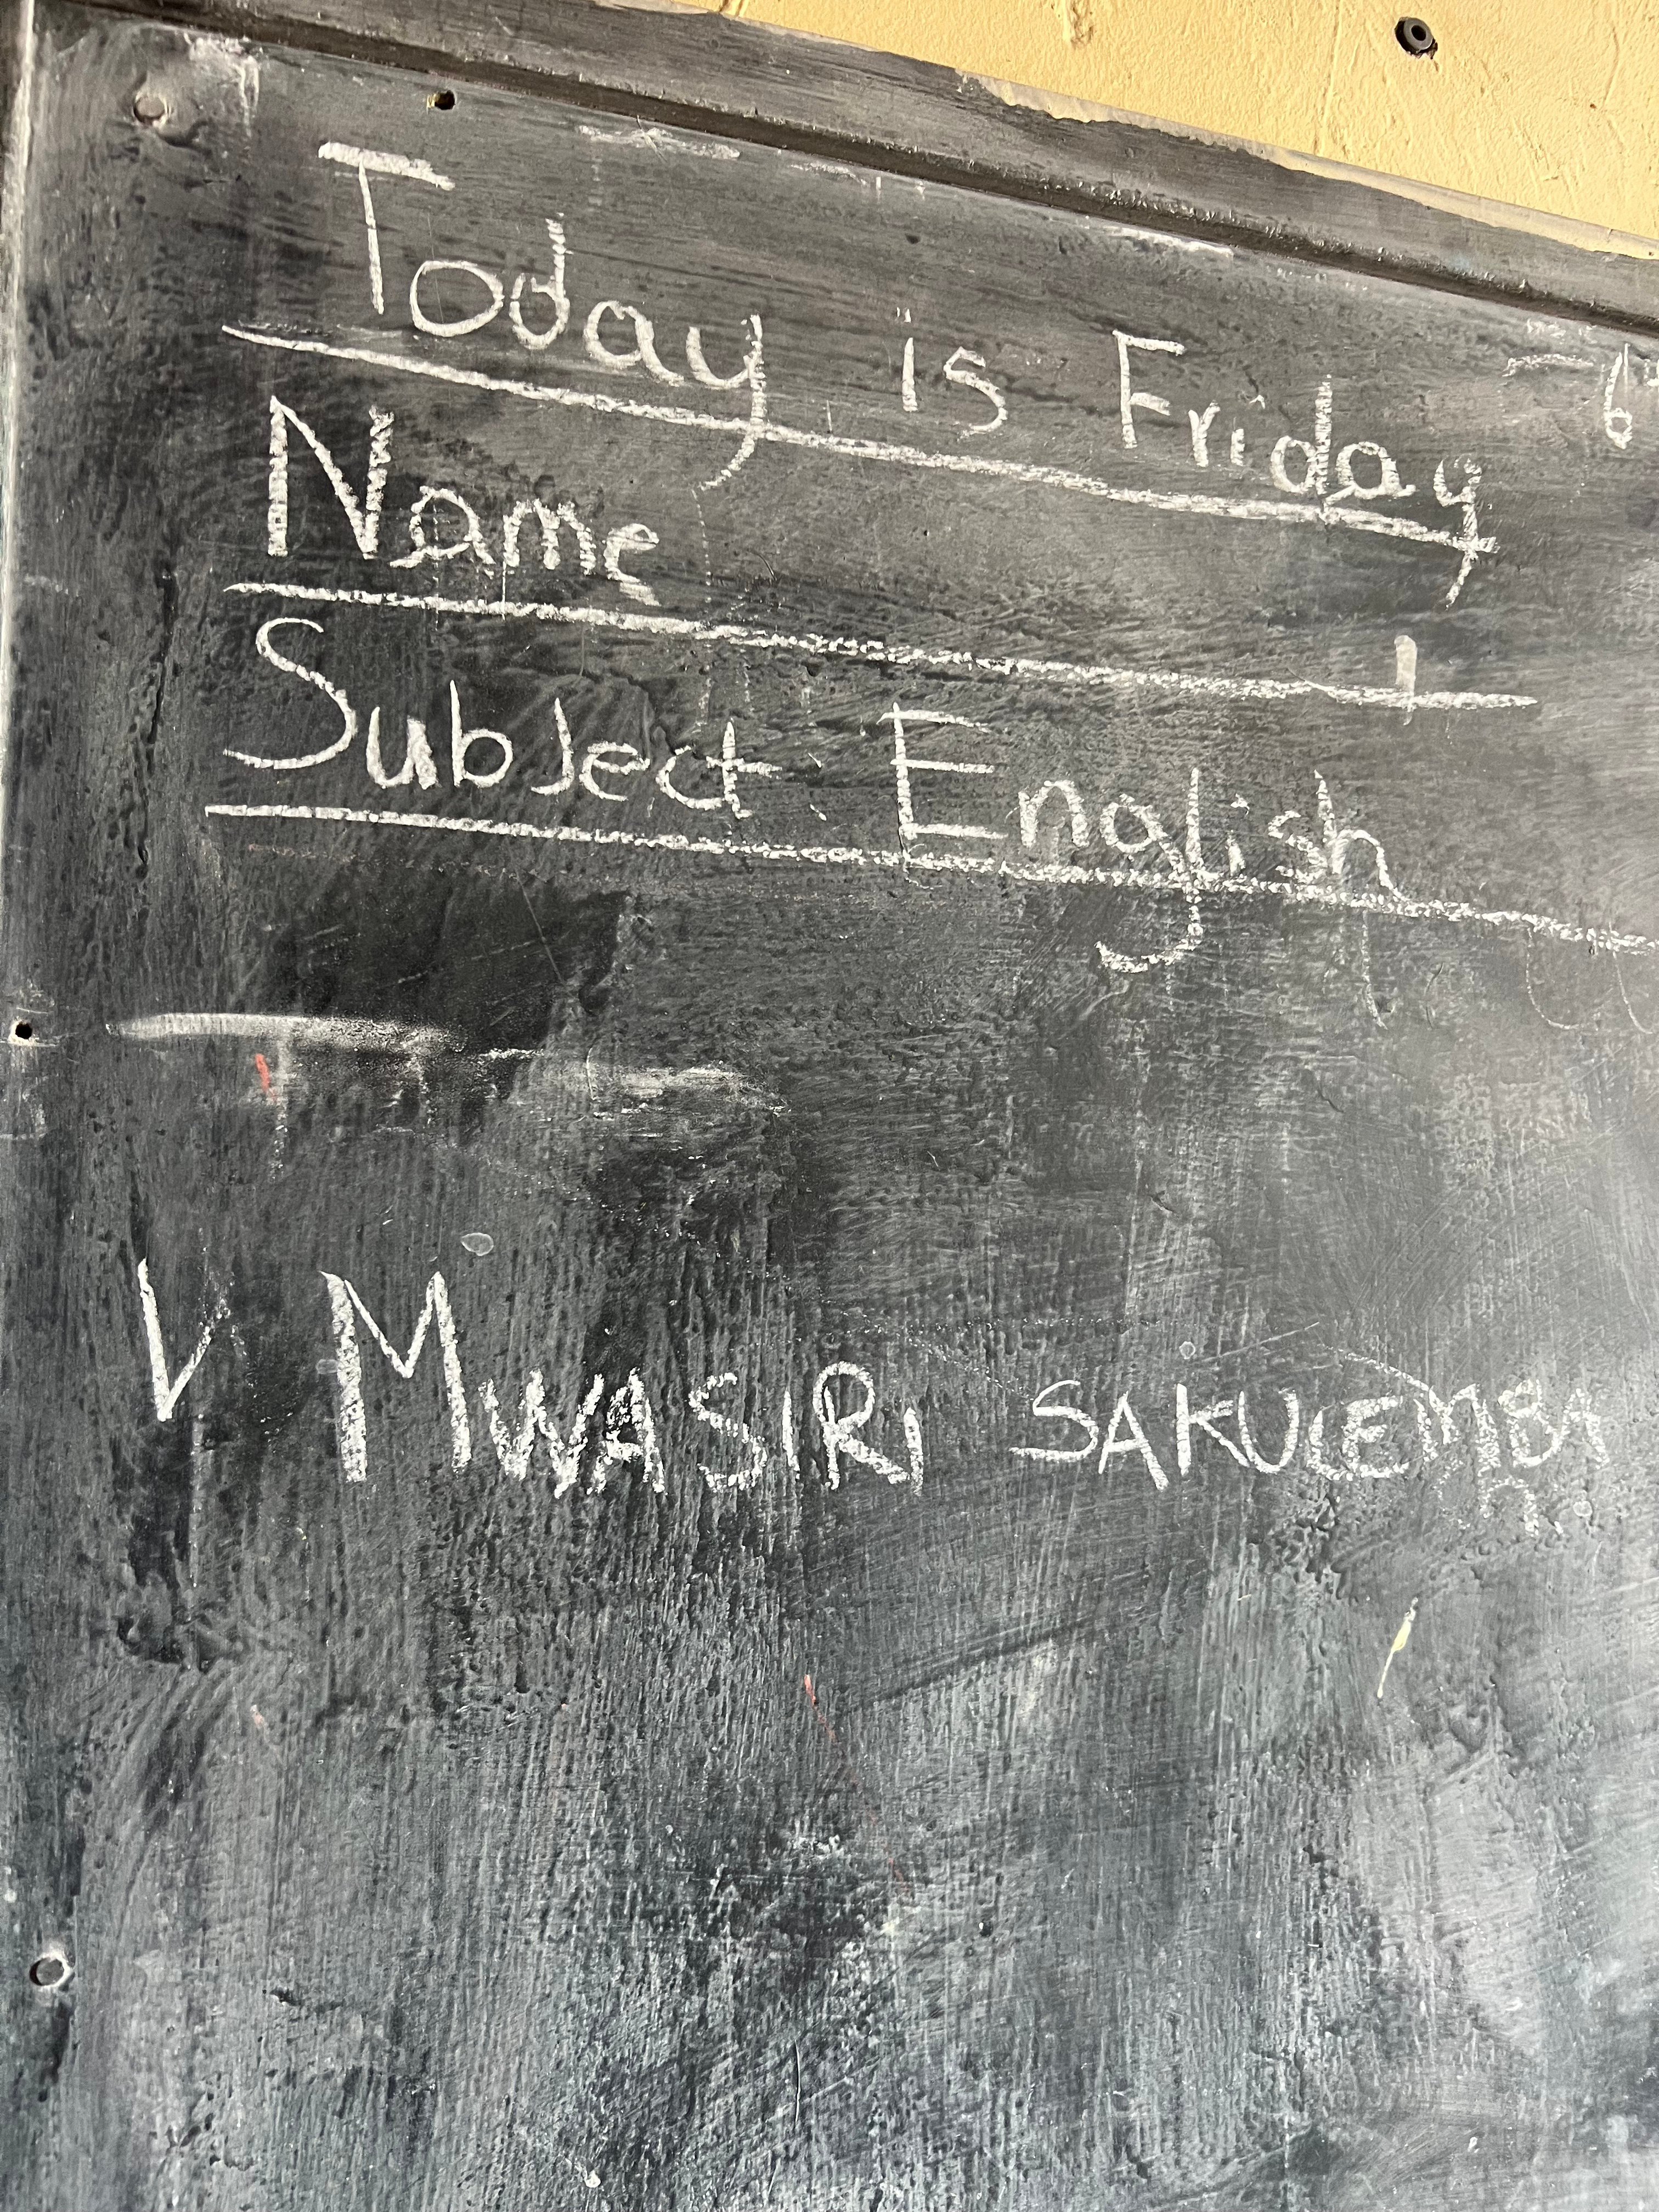 Today is Friday
Name
Subject: English
V MWASIRI SAKULEMBA